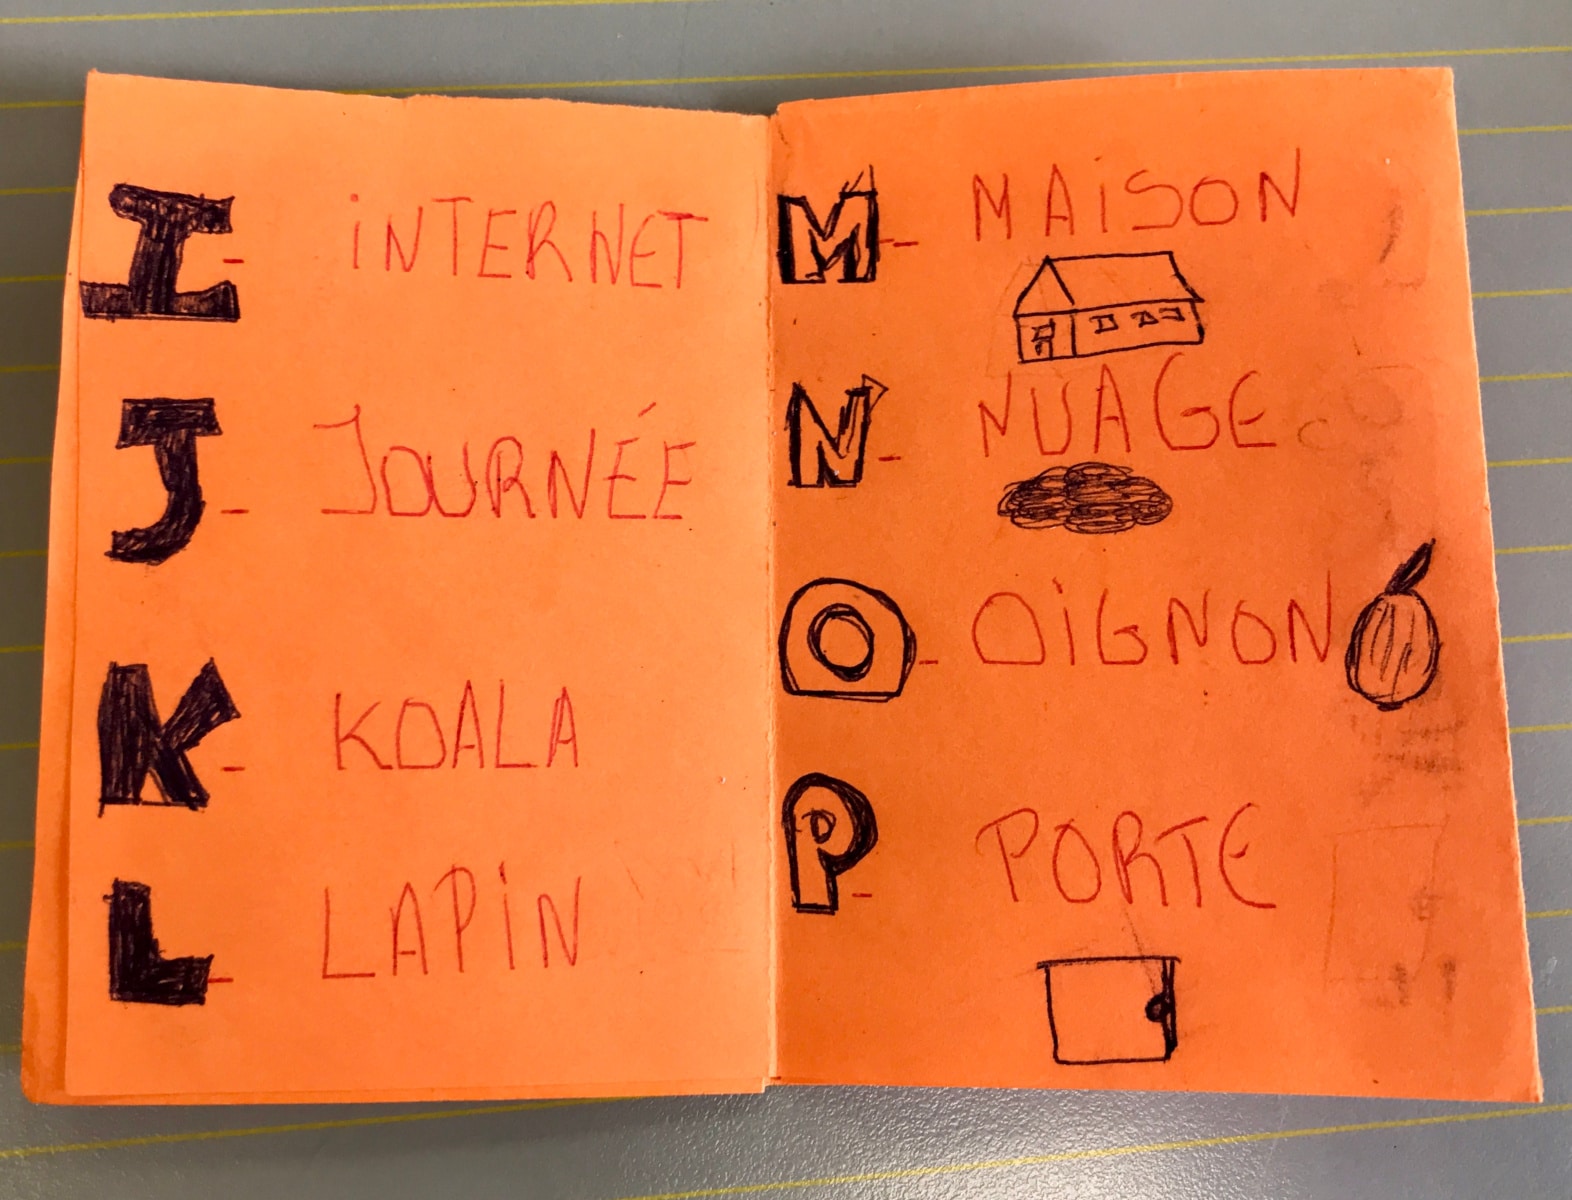 I - iNTERNET
J - JOURNÉE
K - KOALA
L - LAPiN
M - MAiSON
N - NUAGE
O - OiGNON
P - PORTE